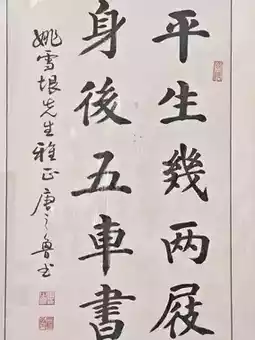 平生幾两屐
身後五車書
姚雪垠先生雅正唐之魯書